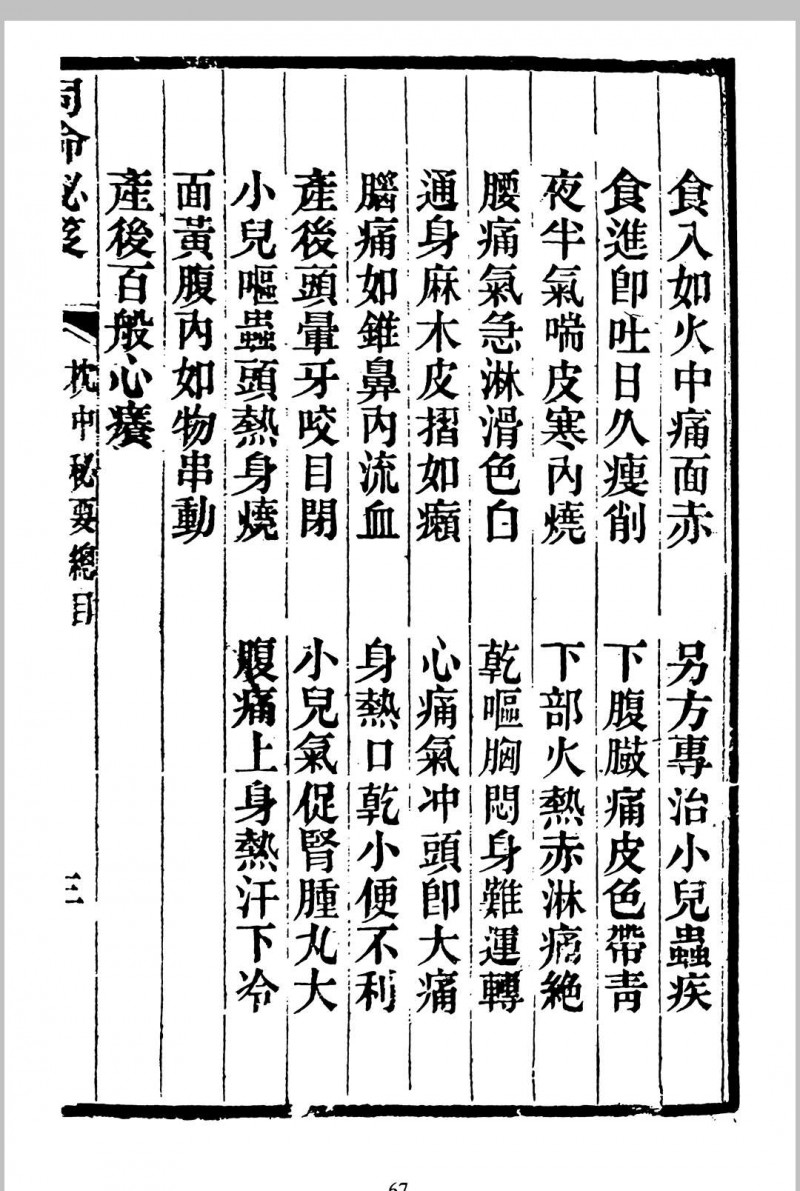 食入如火中痛面赤　另方專治小兒蟲疾
食進卽吐日久瘦削　下腹臟痛皮色帶青
夜半氣喘皮寒內燒　下部火熱赤淋痛絕
腰痛氣急淋滑色白　乾嘔胸悶身難運轉
通身麻木皮摺如癩　心痛氣冲頭卽大痛
腦痛如錐鼻內流血　身熱口乾小便不利
產後頭暈牙咬目閉　小兒氣促腎腫丸大
小兒嘔蟲頭熱身燒　腹痛上身熱汗下冷
面黃腹內如物串動
產後百般心癢
枕中秘要總目
三
67